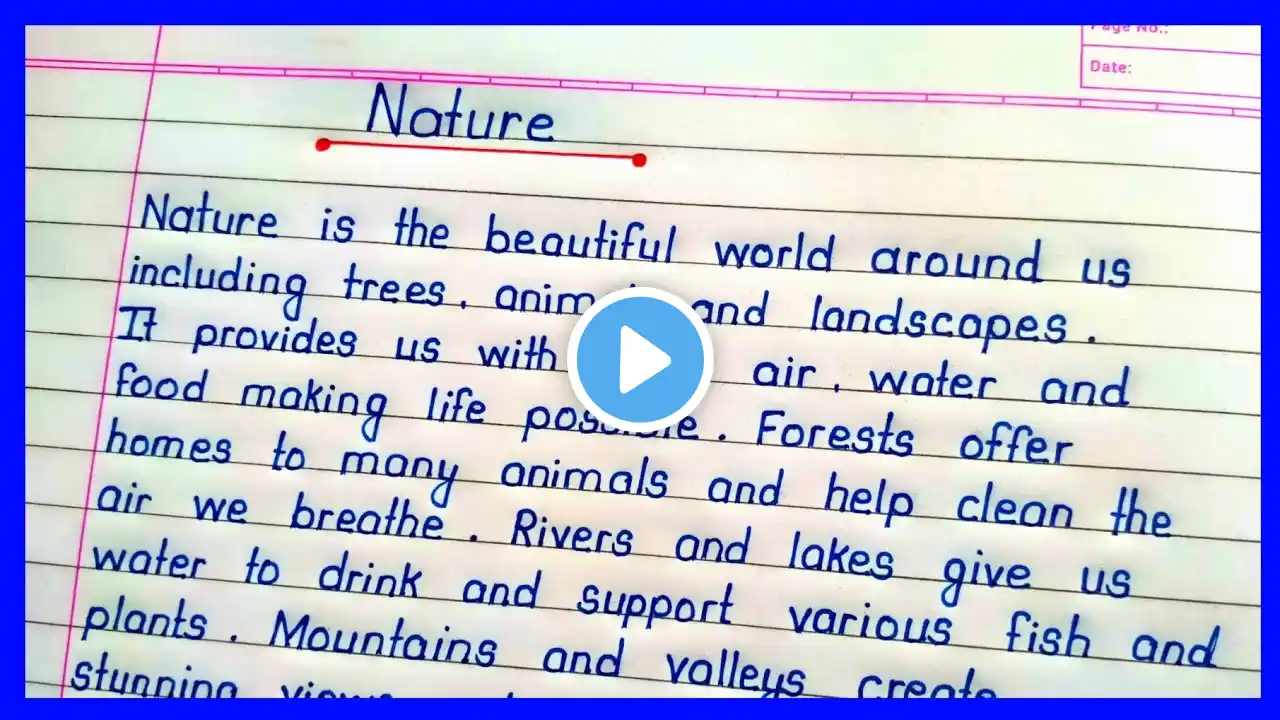 Page No.:
Date:
Nature
Nature is the beautiful world around us
including trees, and landscapes.
It provides us with air, water and
food making life possible. Forests offer
homes to many animals and help clean the
air we breathe. Rivers and lakes give us
water to drink and support various fish and
plants. Mountains and valleys create
stunning views